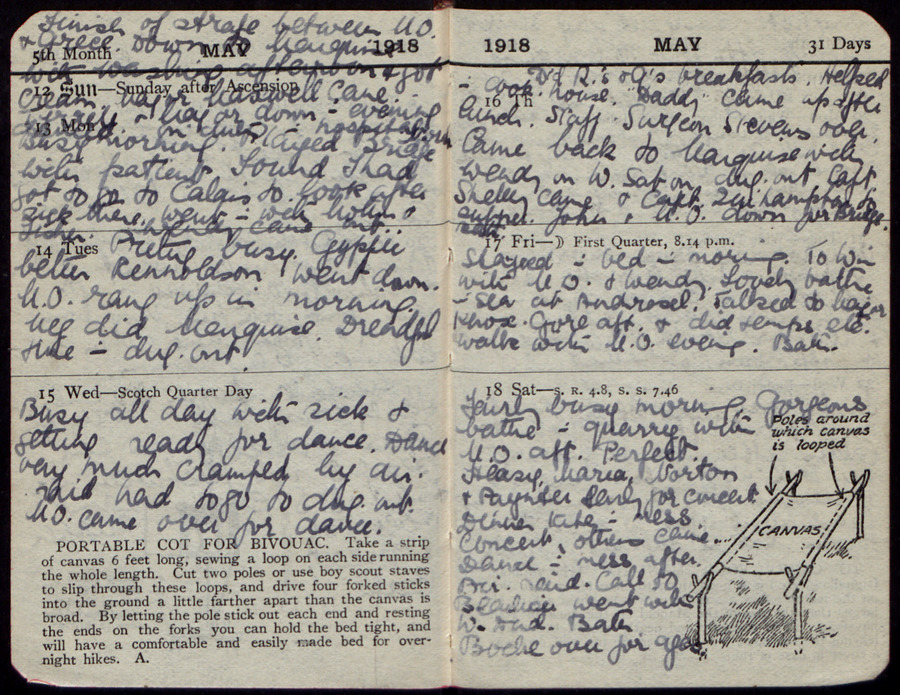 Finish of strafe between M.O.
& Greer. Down to Marquise
5th Month MAY 1918
with washing afternoon & got
12 Sun—Sunday after Ascension
cream. Major Maxwell came
down - evening
13 Mon
Busy morning. Played Bridge
with patient. Found I had
got to go to Calais to look after
sick there. Went - with
came out.
14 Tues Pretty busy. Gypsie
better Rennoldson went down.
M.O. rang up in morning
Meg did Marquise. Dreadful
time - dug out
15 Wed—Scotch Quarter Day
Busy all day with sick &
getting ready for dance. Dance
very much cramped by air
raid had to go to dug out.
M.O. came over for dance.
PORTABLE COT FOR BIVOUAC. Take a strip
of canvas 6 feet long, sewing a loop on each side running
the whole length. Cut two poles or use boy scout staves
to slip through these loops, and drive four forked sticks
into the ground a little farther apart than the canvas is
broad. By letting the pole stick out each end and resting
the ends on the forks you can hold the bed tight, and
will have a comfortable and easily made bed for over-
night hikes. A.
1918 MAY 31 Days
breakfasts. Helped
- cook house. "Daddy" came up after
16 Th
lunch. Staff Surgeon Stevens over.
Came back to Marquise with
Wendy on W. Sat on dug out Capt
Shelley came & Capt.
supper. John & M.O. down for Bridge.
17 Fri—☽ First Quarter, 8.14 p.m.
Stayed - bed - morning. To Win
with M.O. & Wendy. Lovely bathe
- Sea at Andresel. Talked to Major
Knox-Gore aft. & did temps etc.
Walk with M.O. evening. Bath.
18 Sat—s. R. 4.8, s. s. 7.46
Fairly busy morning Gorgeous
bathe - quarry with
M.O. aft. Perfect.
Heasy, Maria, Norton
& Paynter early for concert.
Dinner - mess
Concert, others came...
Dance - mess after.
raid. Call to
went with
W. Dud. Bath
Boche over for ages.
Poles around
which canvas
is looped
CANVAS